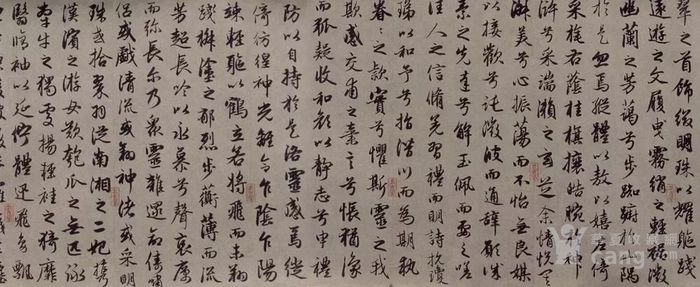 翠之首飾綴明珠以耀軀踐
遠遊之文履曳霧綃之輕裾微
幽蘭之芳藹兮步踟躕隅
於是忽焉縱體以敖以嬉倚
采旄右蔭桂旗攘皓腕神
滸兮采湍瀨之玄芝余情悅其
淑美兮心振蕩而不怡無良媒
以接歡兮託微波而通辭願誠
素之先達兮解玉佩而要之嗟
佳人之信脩羌習禮而明詩抗瓊
珶以和予兮指潛川而為期執
眷〻之款實兮懼斯靈之我
欺感交甫之棄言兮悵猶豫
而狐疑收和顏以靜志兮申禮
防以自持於是洛靈感焉徙
倚彷徨神光離合乍陰乍陽
竦輕軀以鶴立若將飛而未翔
踐椒塗之郁烈步蘅薄而流
芳超長吟以永慕兮聲哀厲
而彌長爾乃眾靈雜遝命儔嘯
侶或戲清流或翔神渚或采明
珠或拾翠羽從南湘之二妃攜
漢濱之游女歎匏瓜之無匹詠
牽牛之獨處揚輕袿之猗靡
翳脩袖以延佇體迅飛鳧飄